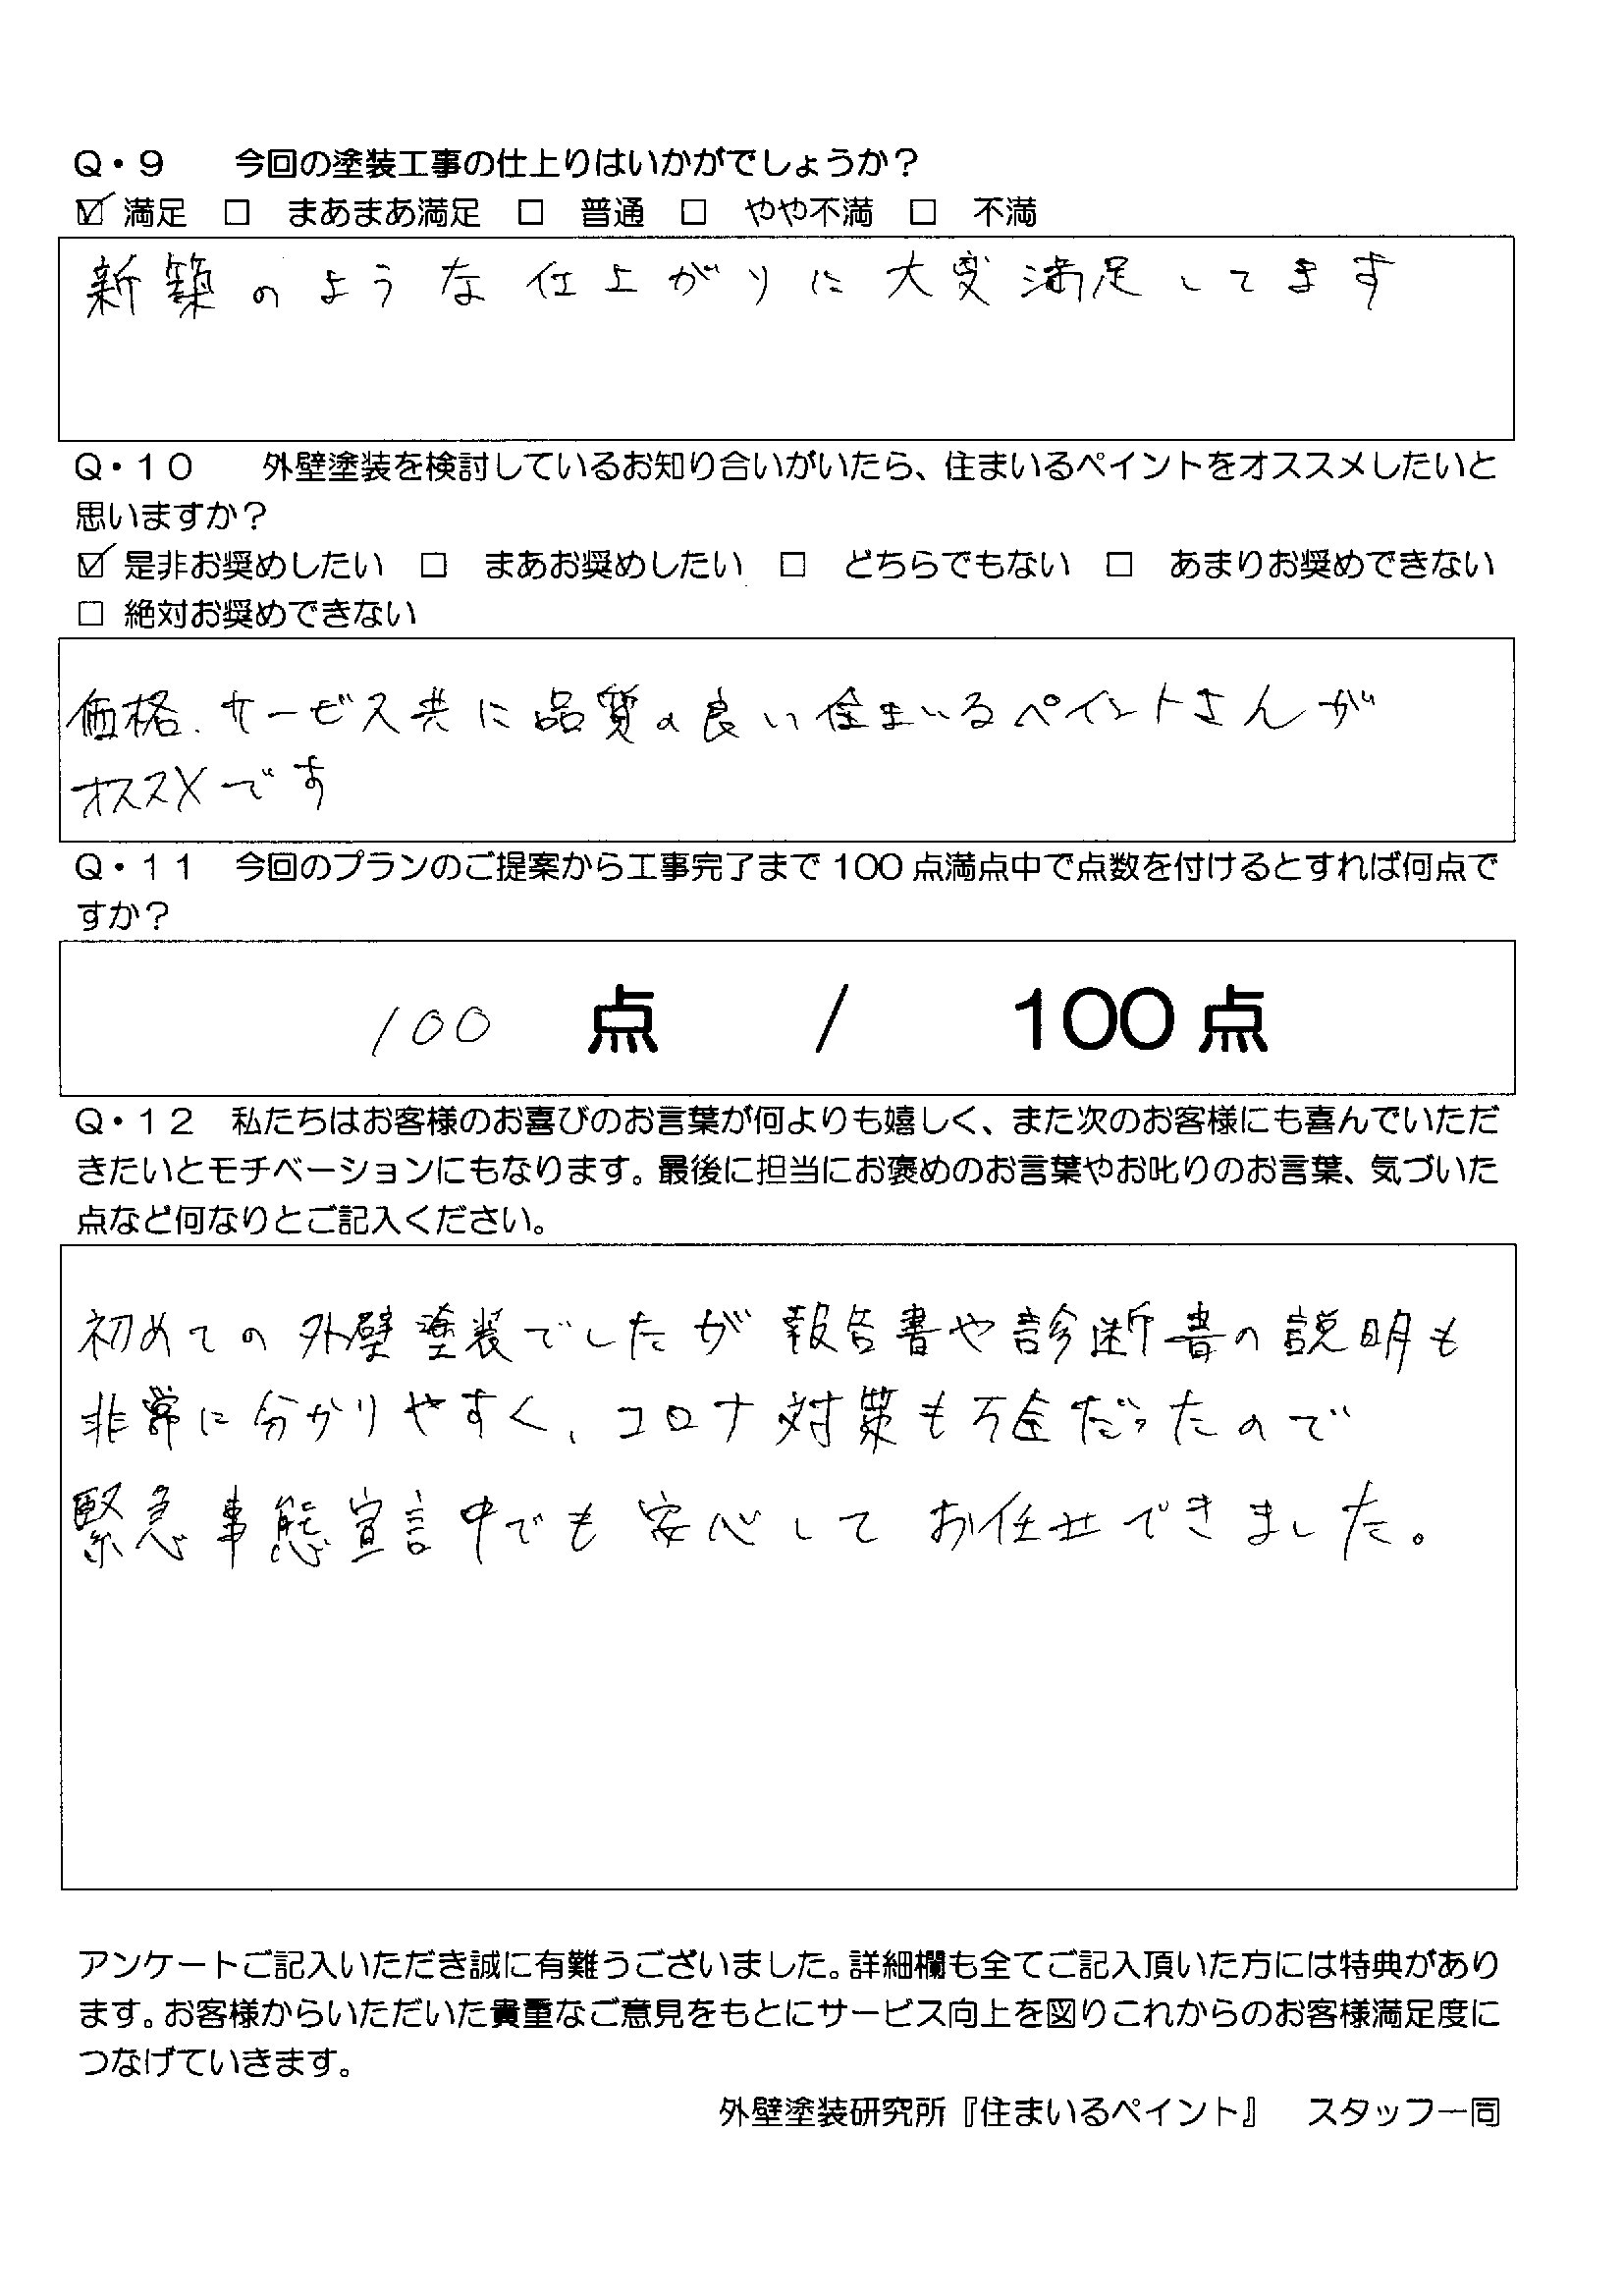 Q・9　今回の塗装工事の仕上りはいかがでしょうか？
☑ 満足　□　まあまあ満足　□　普通　□　やや不満　□　不満
新築のような仕上がりに大変満足してます
Q・10　外壁塗装を検討しているお知り合いがいたら、住まいるペイントをオススメしたいと
思いますか？
☑ 是非お奨めしたい　□　まあお奨めしたい　□　どちらでもない　□　あまりお奨めできない
□ 絶対お奨めできない
価格、サービス共に品質の良い住まいるペイントさんが
オススメです
Q・11　今回のプランのご提案から工事完了まで100点満点中で点数を付けるとすれば何点で
すか？
100 点　/　100点
Q・12　私たちはお客様のお喜びのお言葉が何よりも嬉しく、また次のお客様にも喜んでいただ
きたいとモチベーションにもなります。最後に担当にお褒めのお言葉やお叱りのお言葉、気づいた
点など何なりとご記入ください。
初めての外壁塗装でしたが報告書や診断書の説明も
非常に分かりやすく、コロナ対策も万全だったので
緊急事態宣言中でも安心してお任せできました。
アンケートご記入いただき誠に有難うございました。詳細欄も全てご記入頂いた方には特典があり
ます。お客様からいただいた貴重なご意見をもとにサービス向上を図りこれからのお客様満足度に
つなげていきます。
外壁塗装研究所『住まいるペイント』　スタッフ一同